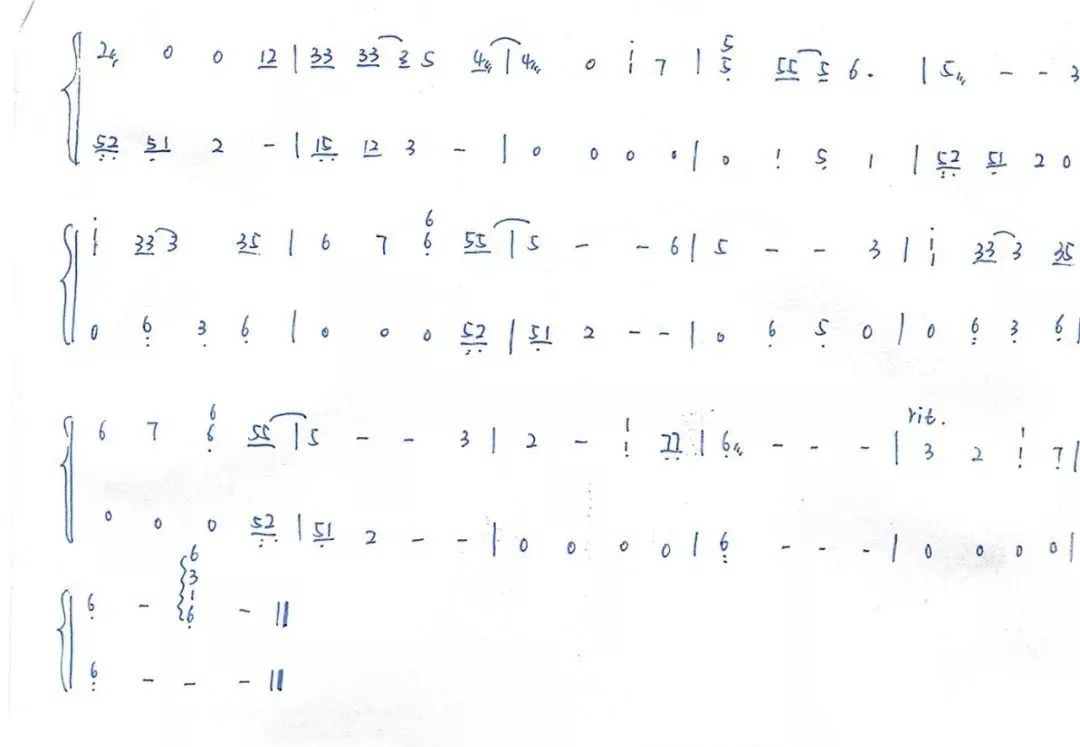 2 0 0 12 | 33 33 3 5 4 | 4 0 i 7 | 5 5 55 5 6. | 5 - - 3
52 51 2 - | 15 12 3 - | 0 0 0 0 | 0 1 5 1 | 52 51 2 0
i 33 3 35 | 6 7 6 6 55 | 5 - - 6 | 5 - - 3 | i 33 3 35
0 6 3 6 | 0 0 0 52 | 51 2 - - | 0 6 5 0 | 0 6 3 6 |
rit.
6 7 6 6 55 | 5 - - 3 | 2 - 1 1 77 | 6 - - - | 3 2 1 1 7 |
0 0 0 52 | 51 2 - - | 0 0 0 0 | 6 - - - | 0 0 0 0 |
6 - 6 3 1 6 - ||
6 - - - ||